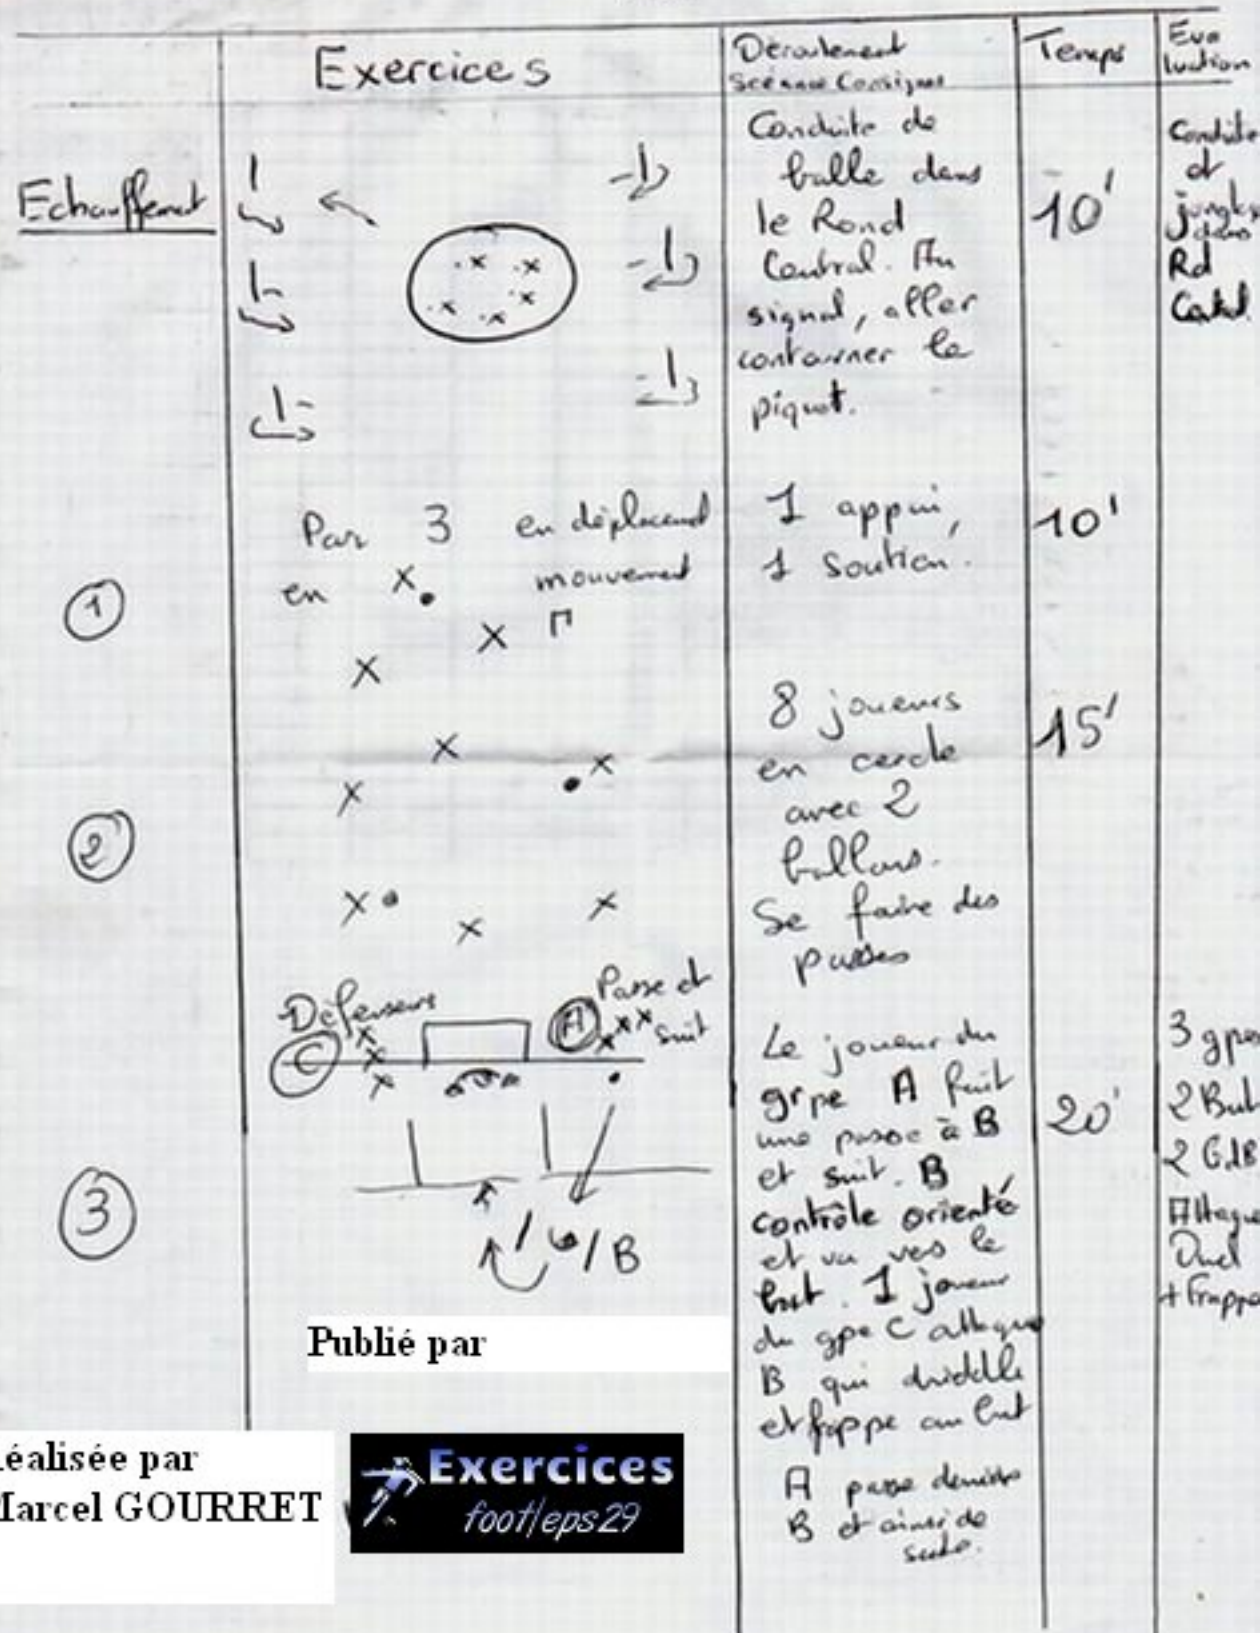 Exercices
Déroulement
Séance Consignes
Temps
Eva
luation
Echauffement
Conduite de
balle dans
le Rond
Central. Au
signal, aller
contourner le
piquet.
10'
Conduite
et
jongle
dans
Rd
Central.
1
Par 3 en déplacement
en mouvement
1 appui,
1 soutien.
10'
2
8 joueurs
en cercle
avec 2
ballons.
Se faire des
passes
15'
3
Défenseurs
C
A
Passe et
suit
B
Le joueur du
grpe A fait
une passe à B
et suit. B
contrôle orienté
et va vers le
but. 1 joueur
du gpe C attaque
B qui dribble
et frappe au but
A passe derrière
B et ainsi de
suite.
20'
3 gpes
2 But
2 G.B
Attaque
Duel
+ frappe
Publié par
éalisée par
Marcel GOURRET
Exercices
foot/eps29